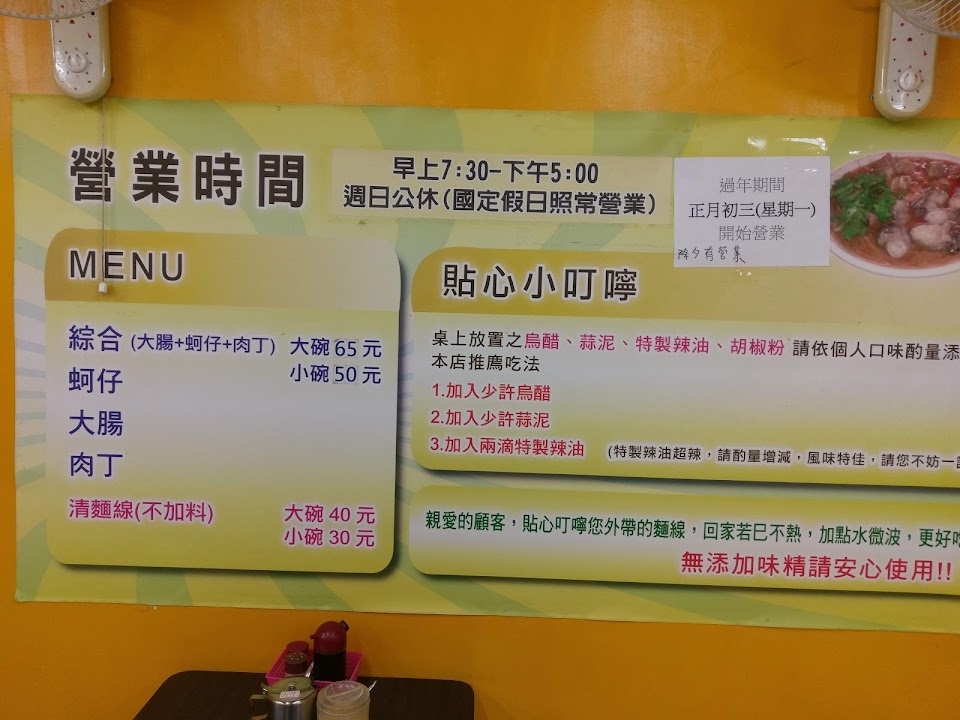 營業時間
早上7:30-下午5:00
週日公休(國定假日照常營業)
過年期間
正月初三(星期一)
開始營業
除夕有營業
MENU
綜合 (大腸+蚵仔+肉丁) 大碗 65 元
小碗 50 元
蚵仔
大腸
肉丁
清麵線(不加料) 大碗 40 元
小碗 30 元
貼心小叮嚀
桌上放置之烏醋、蒜泥、特製辣油、胡椒粉 請依個人口味酌量添
本店推薦吃法
1.加入少許烏醋
2.加入少許蒜泥
3.加入兩滴特製辣油 (特製辣油超辣，請酌量增減，風味特佳，請您不妨一
親愛的顧客，貼心叮嚀您外帶的麵線，回家若巳不熱，加點水微波，更好
無添加味精請安心使用!!